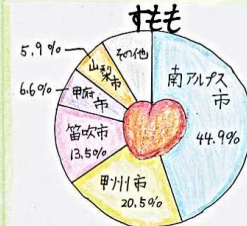 すもも
南アルプス
市
44.9%
甲州市
20.5%
笛吹市
13.5%
甲府
市
6.6%
山梨
市
5.9%
その他